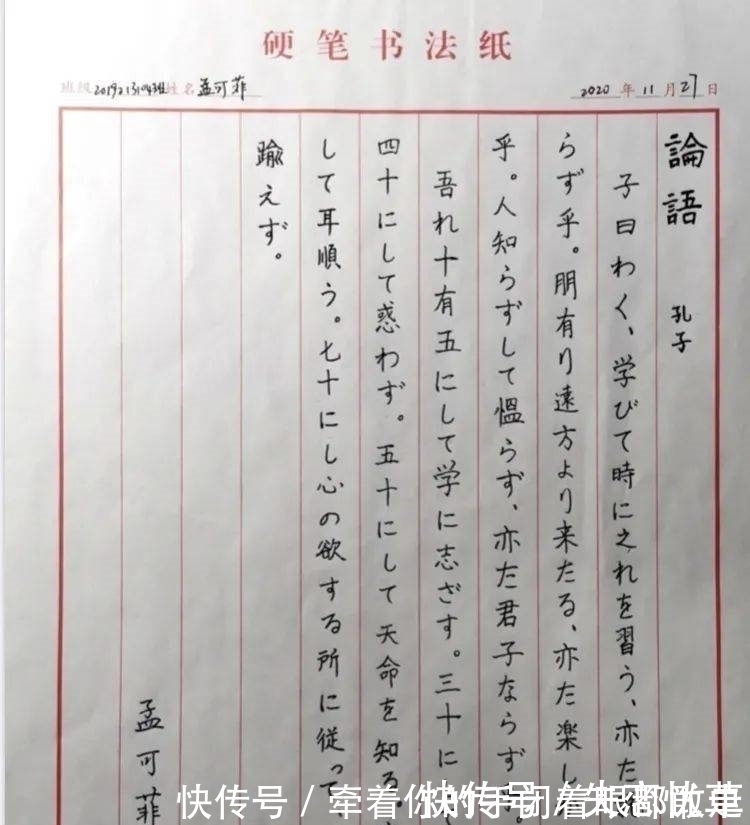 硬笔书法纸
班级 2019213104班 姓名 孟可菲
2020 年 11 月 27 日
論語 孔子
子曰わく、学びて時に之れを習う、亦た
らず乎。朋有り遠方より来たる、亦た楽し
乎。人知らずして愠らず、亦た君子ならず
吾れ十有五にして学に志ざす。三十に
四十にして惑わず。五十にして天命を知る。
して耳順う。七十にし心の欲する所に従って、
踰えず。
孟可菲
快传号 / 牵着你的手闭着眼都敢走
快传号 /